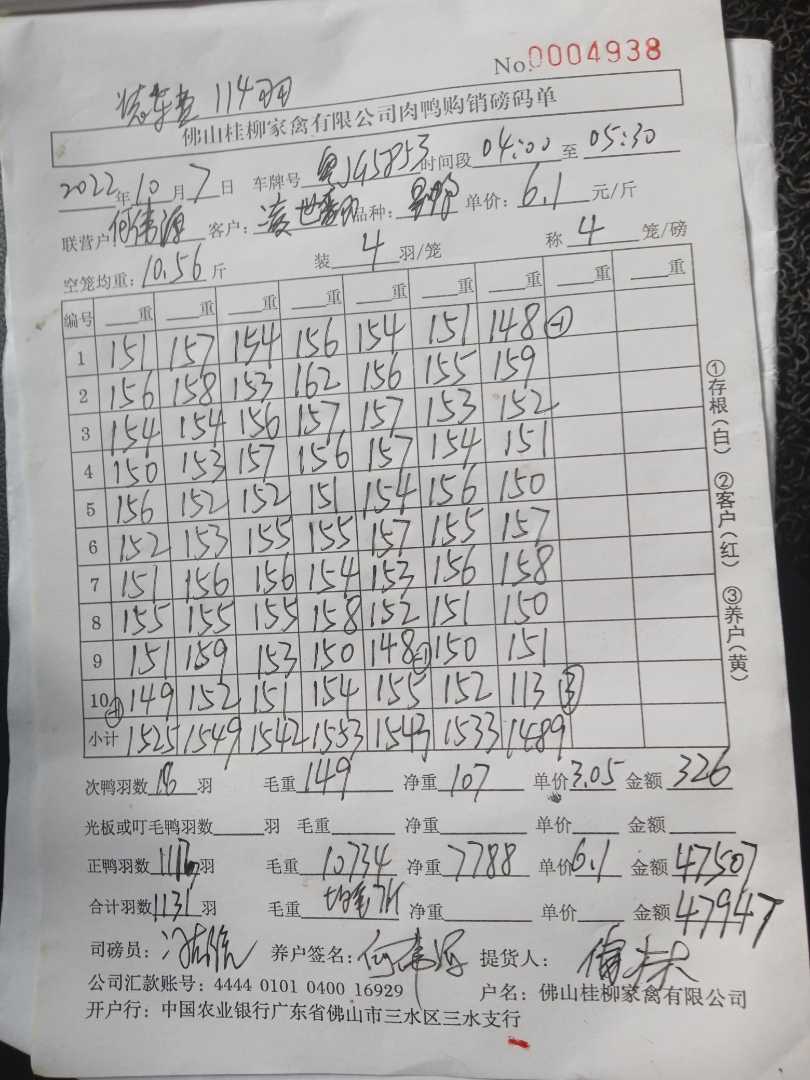 No.0004938
装车查 114羽
佛山桂柳家禽有限公司肉鸭购销磅码单
2022年10月7日 车牌号 粤JG5853 时间段 04:00 至 05:30
联营户何伟源 客户: 品种: 单价: 6.1 元/斤
空笼均重: 10.56 斤 装 4 羽/笼 称 4 笼/磅
编号 重 重 重 重 重 重 重 重 重
1 151 157 154 156 154 151 148 -1
2 156 158 153 162 156 155 159
3 154 154 156 157 157 153 152
4 150 153 157 156 157 154 151
5 156 152 152 151 154 156 150
6 152 153 155 155 157 155 157
7 151 156 156 154 153 156 158
8 155 155 155 158 152 151 150
9 151 159 153 150 148 -1 150 151
10 -1 149 152 151 154 155 152 113 3
小计 1525 1549 1542 1553 1543 1533 1489
次鸭羽数 羽 毛重 149 净重 107 单价 3.05 金额 326
光板或叮毛鸭羽数 羽 毛重 净重 单价 金额
正鸭羽数 羽 毛重 10734 净重 7788 单价 6.1 金额 47507
合计羽数 1131 羽 毛重 净重 单价 金额 47947
司磅员: 养户签名: 何伟源 提货人:
公司汇款账号: 4444 0101 0400 16929 户名: 佛山桂柳家禽有限公司
开户行: 中国农业银行广东省佛山市三水区三水支行
①存根(白) ②客户(红) ③养户(黄)